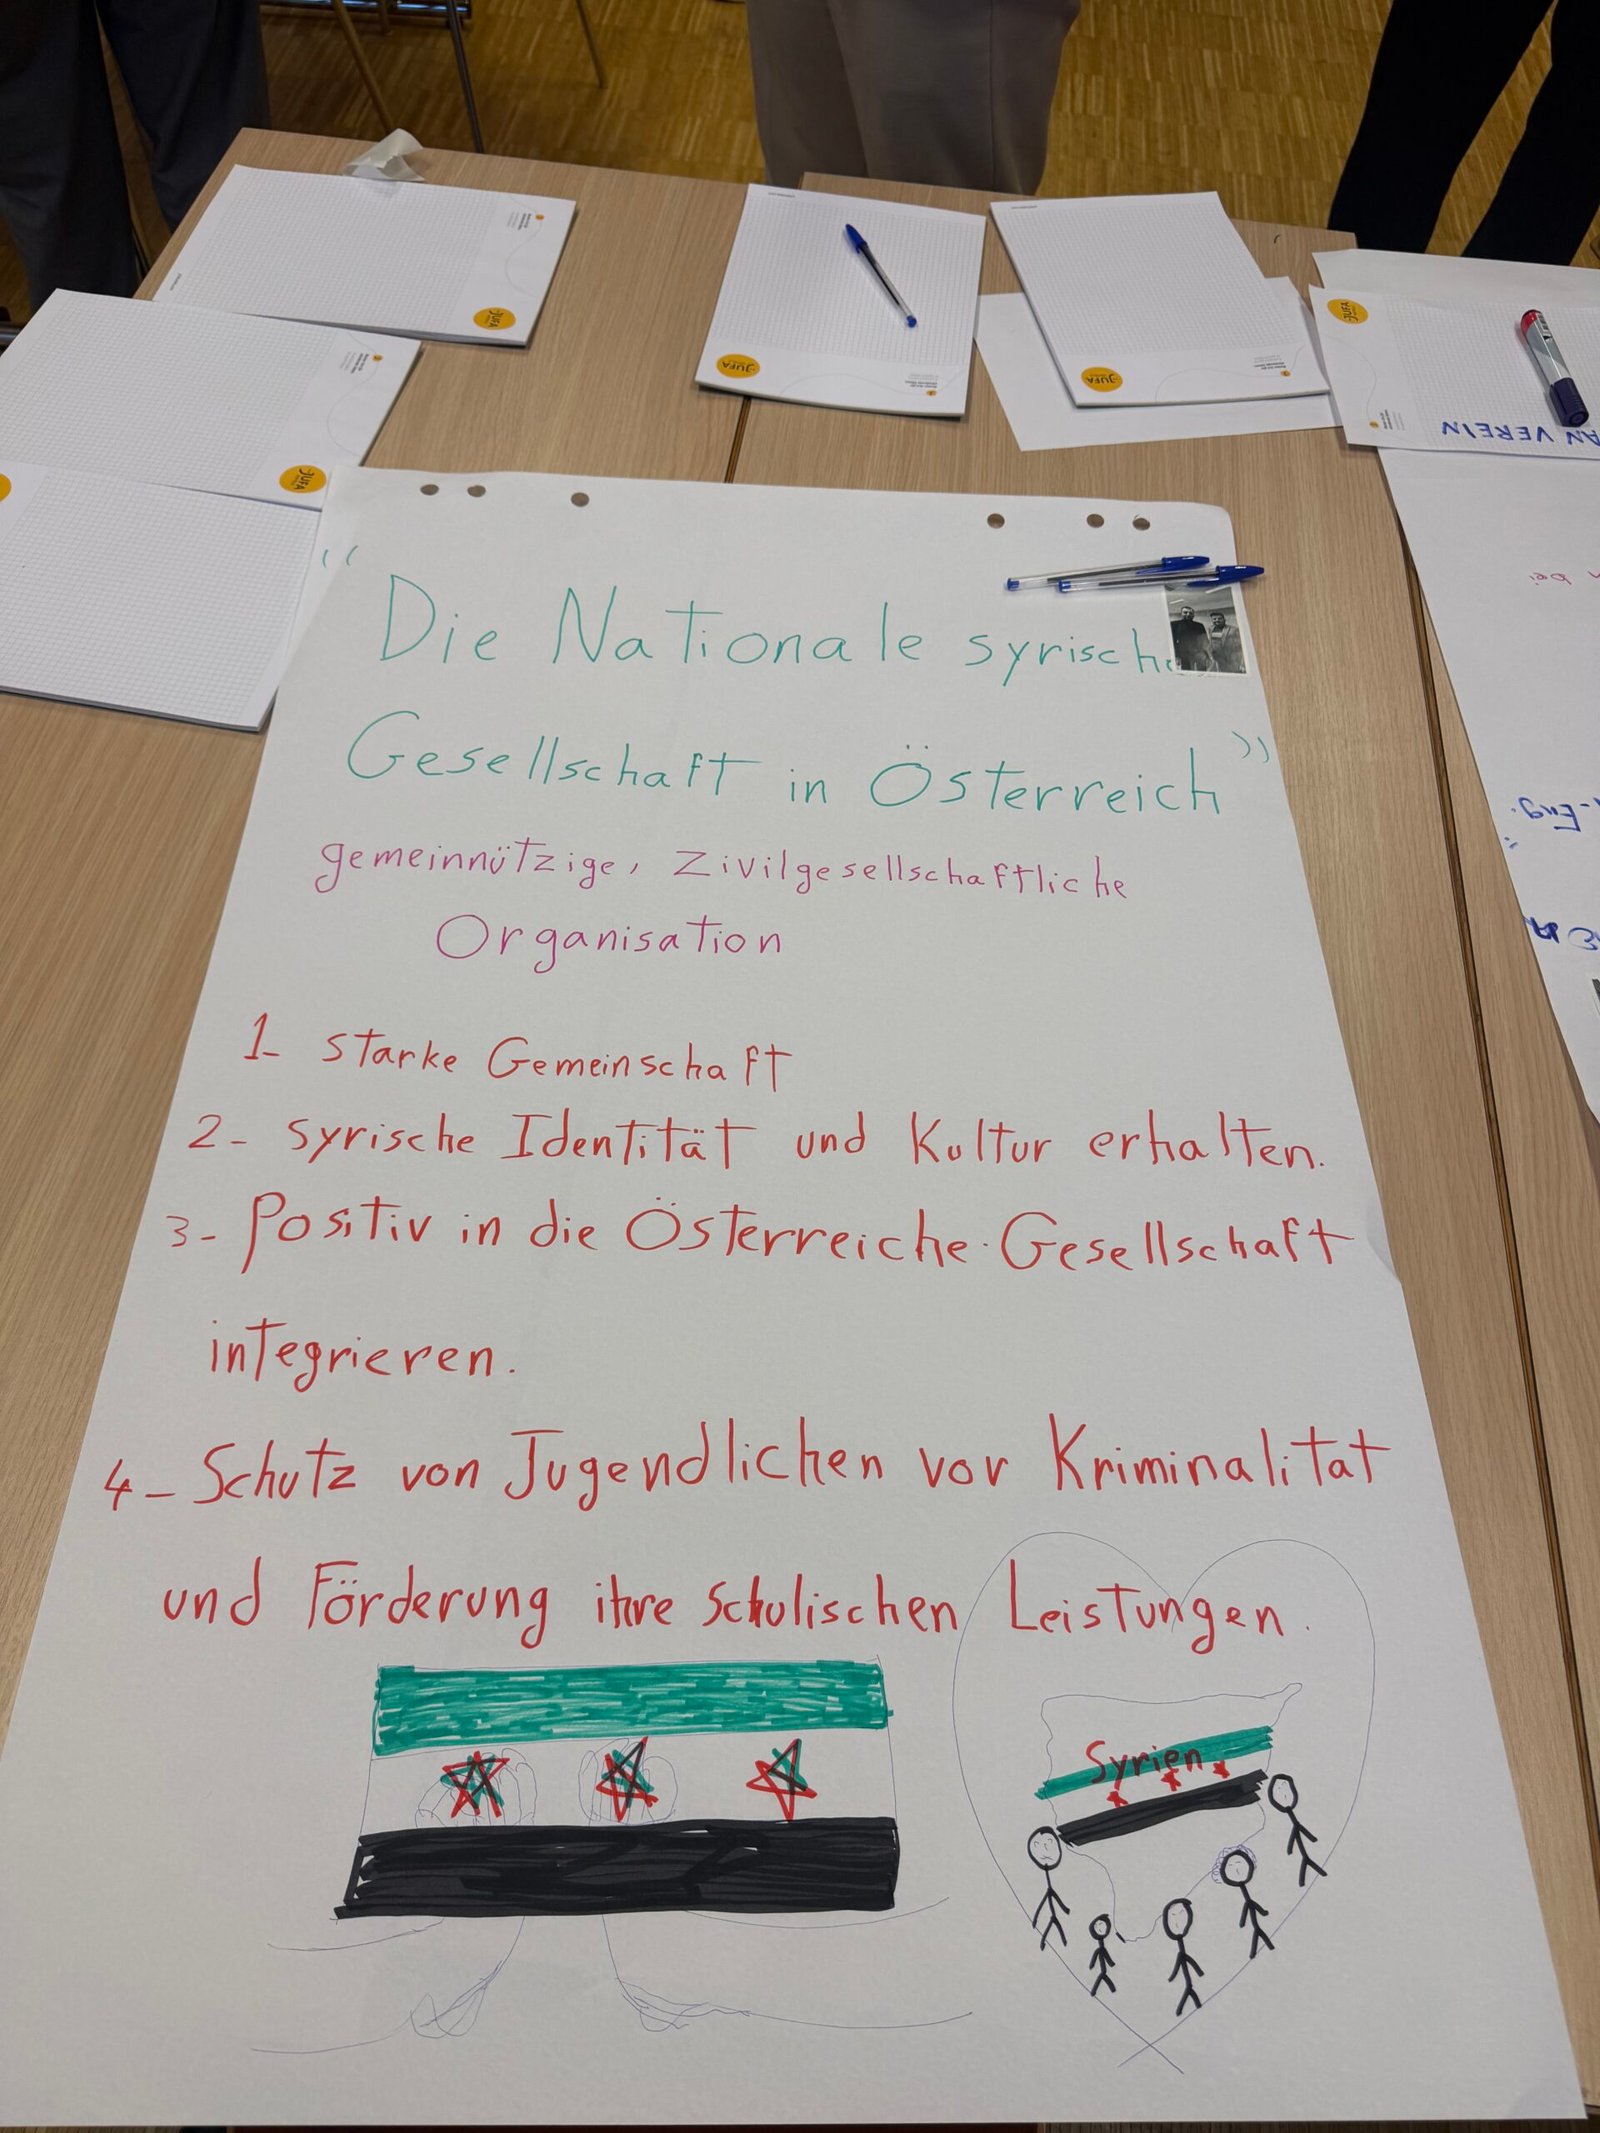 "Die Nationale syrische
Gesellschaft in Österreich"
gemeinnützige, Zivilgesellschaftliche
Organisation
1- starke Gemeinschaft
2- syrische Identität und Kultur erhalten.
3- Positiv in die Österreiche Gesellschaft
integrieren.
4- Schutz von Jugendlichen vor Kriminalität
und Förderung ihre schulischen Leistungen.
Syrien
JUFA
JUFA
JUFA
JUFA
JUFA
AN VEREIN
bei
-Eng.